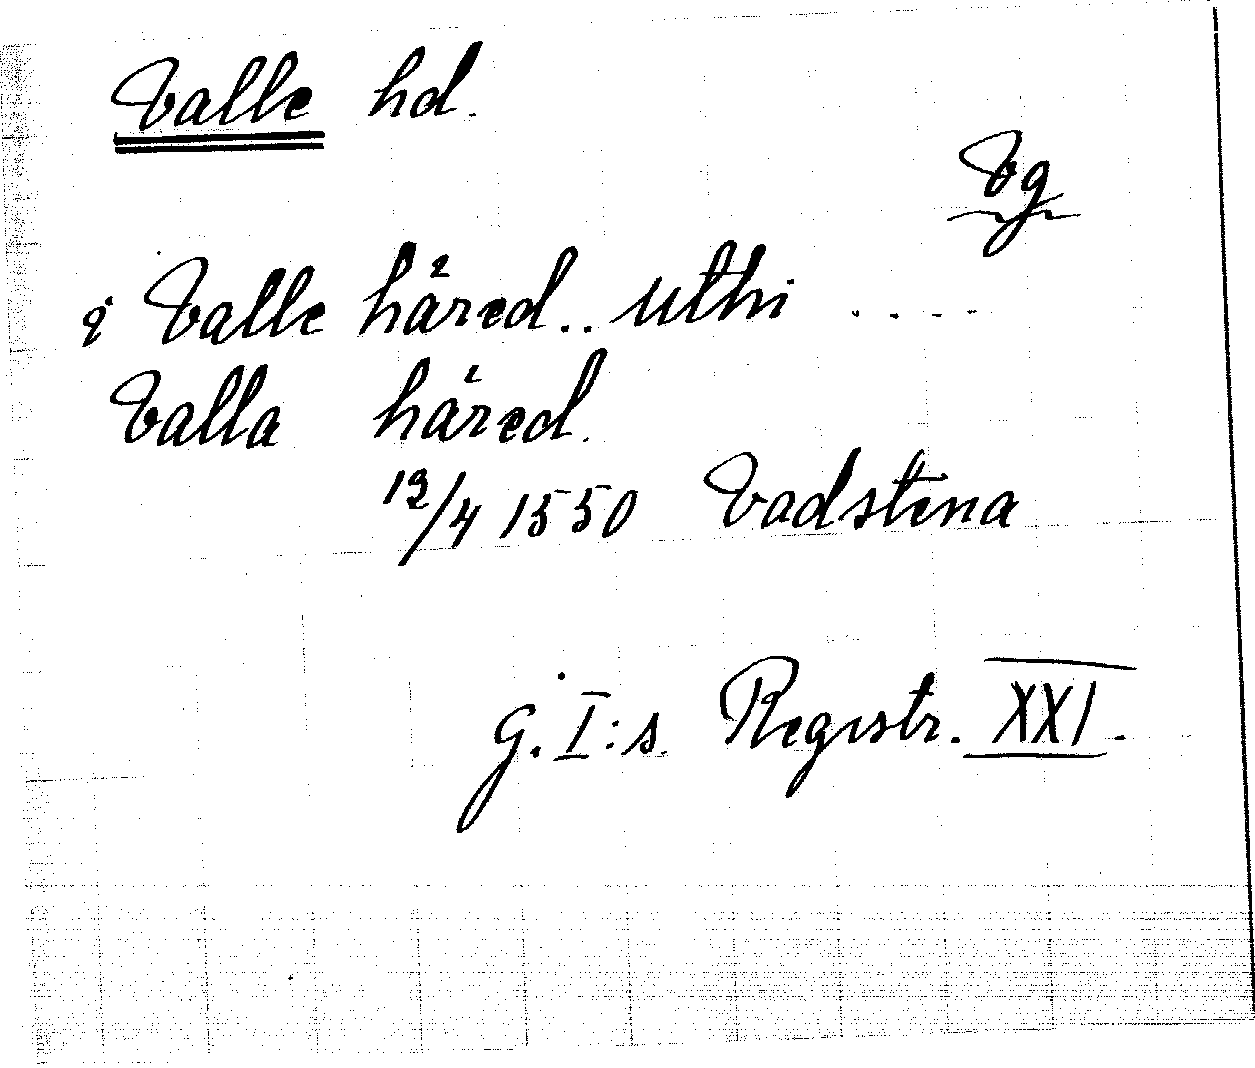 Valle hd.
Vg
i Valle häred.. uthi ....
Valla häred.
12/4 1550 Vadstena
G. I:s. Registr. XXI.